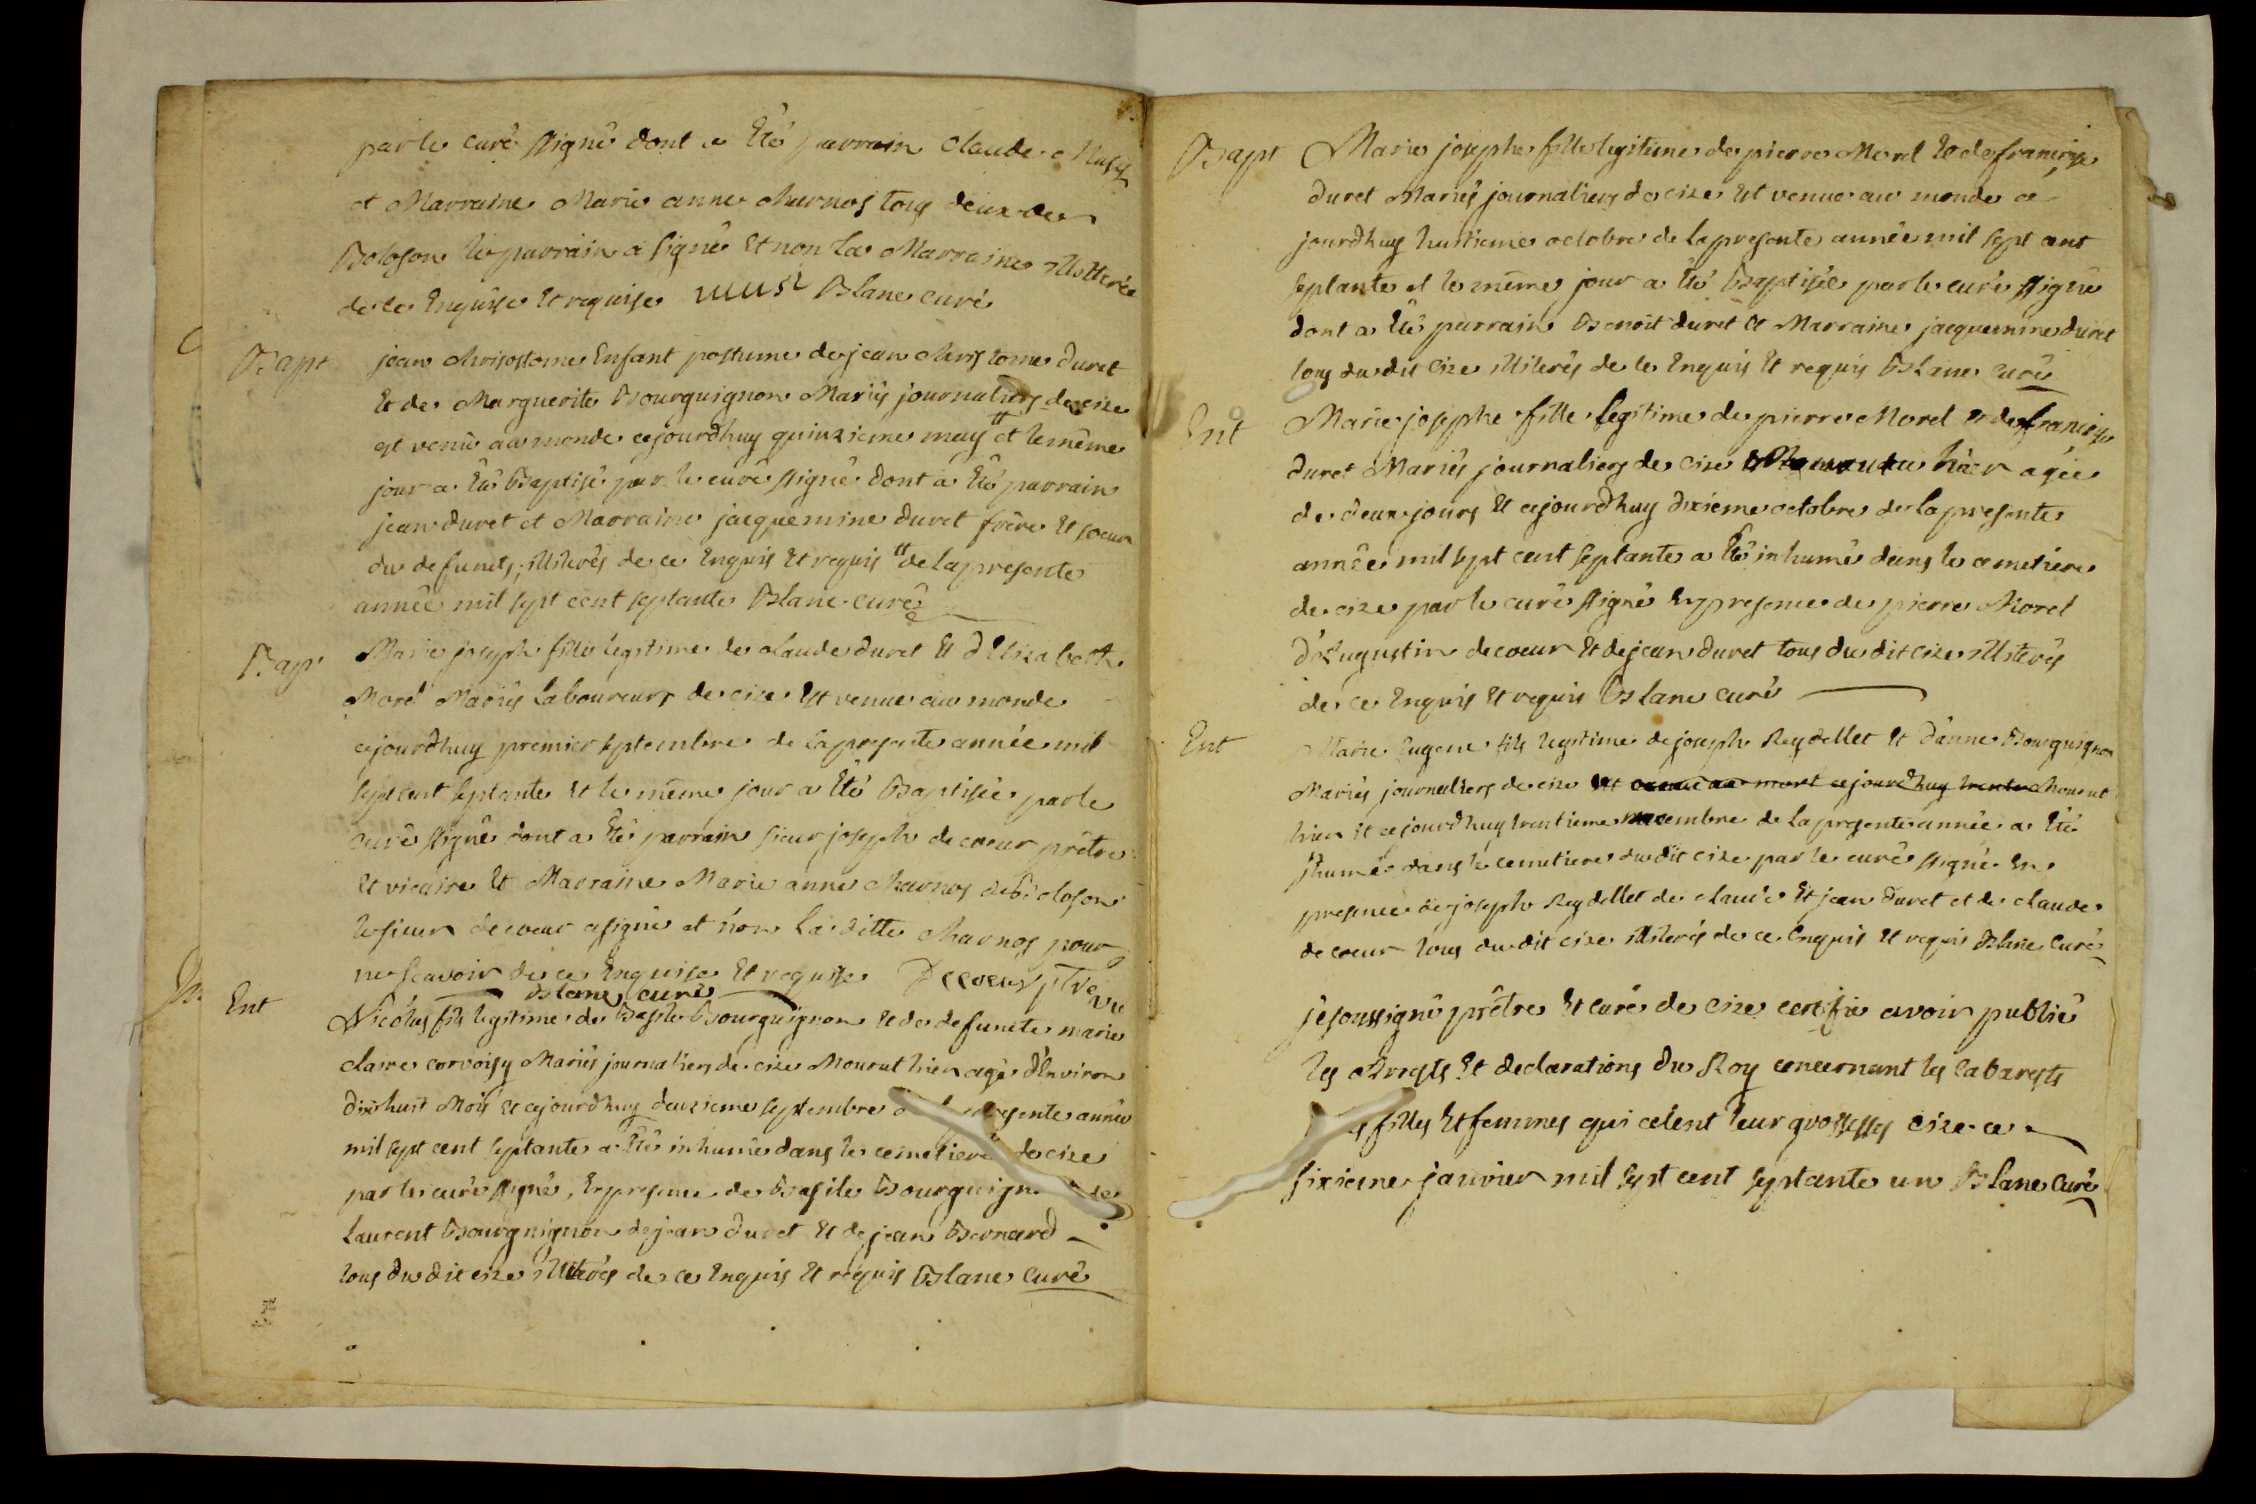 par le curé ssigné dont a Eté parrain Claude
et Marraine Marie anne Charnos tous deux de
Boloson le parrain a signé Et non la Marraine illiterée
de ce Enquise Et requise Blanc curé
Bapt
jean chrisostome Enfant postume de jean chrisostome duret
Et de Marguerite Bourguignon Mariés journaliers de cize
est venu au monde cejourdhuy quinzieme may # et le même
jour a Eté Baptisé par le curé ssigné dont a Eté parrain
jean duret et Marraine jacquemine duret frère Et soeur
du defunct, illiterés de ce Enquis Et requis # de la presente
année mil sept cent septante Blanc curé
Bap
Marie joseph fille legitime de claude duret Et d'Elizabeth
Morel Mariés laboureurs de cize Est venue au monde
cejourdhuy premier septembre de la presente année mil
sept cent septante Et le même jour a Eté Baptisée par le
curé ssigné dont a Eté parrain sieur joseph decoeur prêtre
Et vicaire Et Marraine Marie anne charnos de Boloson
le sieur decoeur a signé et non la ditte charnos pour
ne scavoir de ce Enquise Et requise Decoeur ptre vic
Blanc curé
Ent
Nicolas fils legitime de Basile Bourguignon Et de defuncte marie
claire corvoisy Mariés journaliers de cize Mourut hier agé d'Environ
dix huit Mois Et cejourdhuy deuxieme septembre de la presente année
mil sept cent septante a Eté inhumé dans le cemetiere de cize
par le curé ssigné, En presence de Basile Bourguignon de
Laurent Bourguignon de jean duret Et de jean Bernard
tous du dit cize illiterés de ce Enquis Et requis Blanc curé
Bapt
Marie josephe fille legitime de pierre Morel Et de françoise
duret Mariés journaliers de cize Est venue au monde ce
jourdhuy huitieme octobre de la presente année mil sept cent
septante et le même jour a Eté Baptisée par le curé ssigné
dont a Eté parrain Benoit duret Et Marraine jacquemine duret
tous du dit cize illiterés de ce Enquis Et requis Blanc curé
Ent
Marie josephe fille legitime de pierre Morel Et de françoise
duret Mariés journaliers de cize Mourut hier agée
de deux jours Et cejourdhuy dixieme octobre de la presente
année mil sept cent septante a Eté inhumé dans le cemetiere
de cize par le curé ssigné En presence de pierre Morel
d'Augustin decoeur Et de jean duret tous du dit cize illiterés
de ce Enquis Et requis Blanc curé
Ent
Marie Eugene fils legitime de joseph Reydellet Et d'anne Bourguignon
Mariés journaliers de cize Est venu au mort cejourdhuy trente Mourut
hier Et cejourdhuy trentieme novembre de la presente année a Eté
jhumée dans le cemetiere du dit cize par le curé ssigné En
presence de joseph Reydellet de claude Et jean duret et de claude
decoeur tous du dit cize illiterés de ce Enquis Et requis Blanc curé
je soussigné prêtre Et curé de cize certifie avoir publié
les Arrests Et declarations du Roy concernant les cabarets
les filles Et femmes qui celent leur grossesses cize ce
sixieme janvier mil sept cent septante un Blanc curé